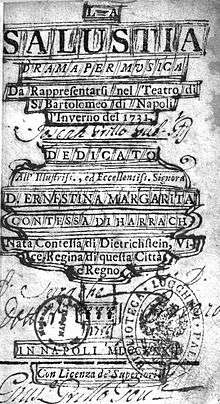 LA
SALUSTIA,
DRAMA PER MUSICA
Da Rappresentarsi nel Teatro di
S. Bartolomeo di Napoli
l'Inverno del 1731.
DEDICATO
All' Illustriss., ed Eccellentiss. Signora
D. ERNESTINA MARGARITA
CONTESSA DI HARRACH
Nata Contessa di Dietrichstein, Vi-
ce Regina di questa Città
e Regno.
IN NAPOLI
Con Licenza de' Superiori